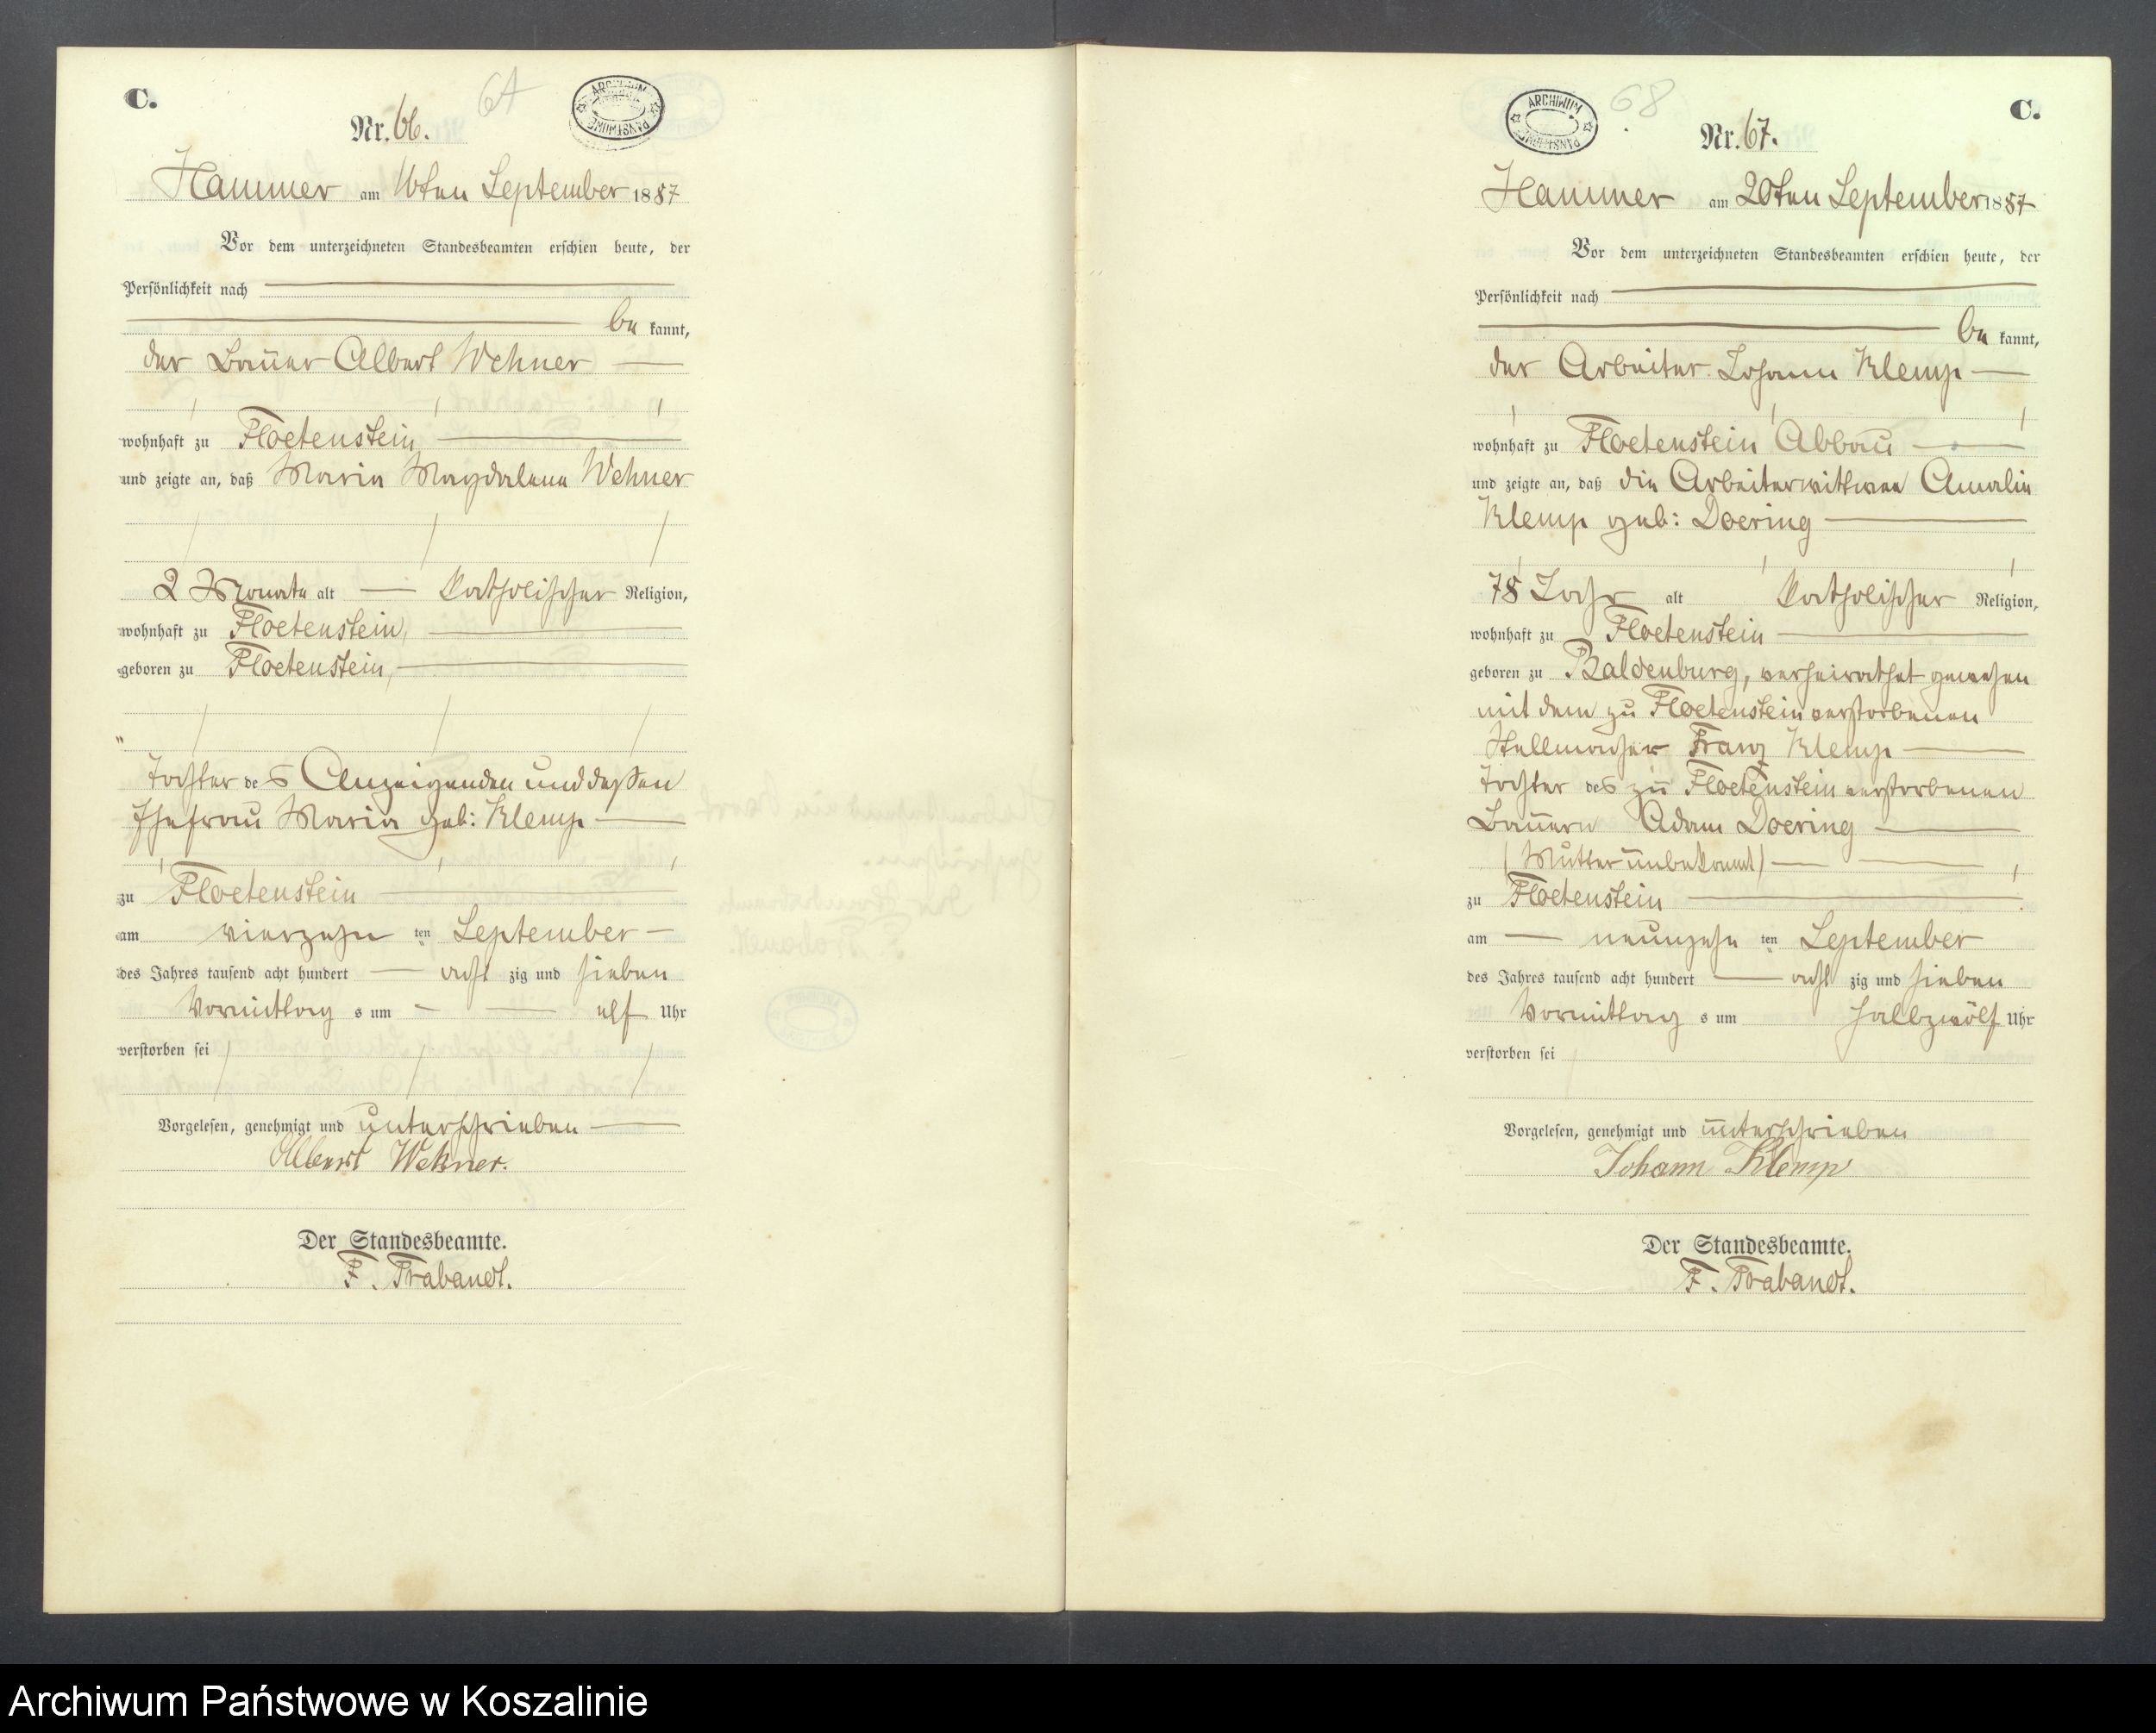 C.
64
ARCHIWUM PAŃSTWOWE
Nr. 66.
Hammer am 16ten September 1887
Vor dem unterzeichneten Standesbeamten erschien heute, der
Persönlichkeit nach
be kannt,
der Bauer Albert Wehner
wohnhaft zu Floetenstein,
und zeigte an, daß Maria Magdalena Wehner
2 Monate alt katholischer Religion,
wohnhaft zu Floetenstein,
geboren zu Floetenstein,
Tochter des Anzeigenden und dessen
Ehefrau Maria geb: Klemp
zu Floetenstein
am vierzehn ten September
des Jahres tausend acht hundert acht zig und sieben
Vormittag s um elf Uhr
verstorben sei
Vorgelesen, genehmigt und unterschrieben
Albert Wehner.
Der Standesbeamte.
F. Trabandt.
C.
68
ARCHIWUM PAŃSTWOWE
Nr. 67.
Hammer am 20ten September 1887
Vor dem unterzeichneten Standesbeamten erschien heute, der
Persönlichkeit nach
be kannt,
der Arbeiter Johann Klemp
wohnhaft zu Floetenstein Abbau
und zeigte an, daß die Arbeiterwittwe Amalie
Klemp geb: Doering
78 Jahr alt katholischer Religion,
wohnhaft zu Floetenstein
geboren zu Baldenburg, verheirathet gewesen
mit dem zu Floetenstein verstorbenen
Stellmacher Franz Klemp
Tochter des zu Floetenstein verstorbenen
Bauern Adam Doering
(Mutter unbekannt)
zu Floetenstein
am neunzehn ten September
des Jahres tausend acht hundert acht zig und sieben
Vormittag s um halbzwölf Uhr
verstorben sei
Vorgelesen, genehmigt und unterschrieben
Johann Klemp
Der Standesbeamte.
F. Trabandt.
Archiwum Państwowe w Koszalinie